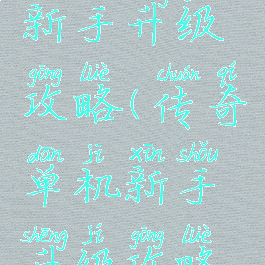 新手升级
gōng lüè chuán qí
攻略(传奇
dān jī xīn shǒu
单机新手
shēng jí gōng lüè
升级攻略